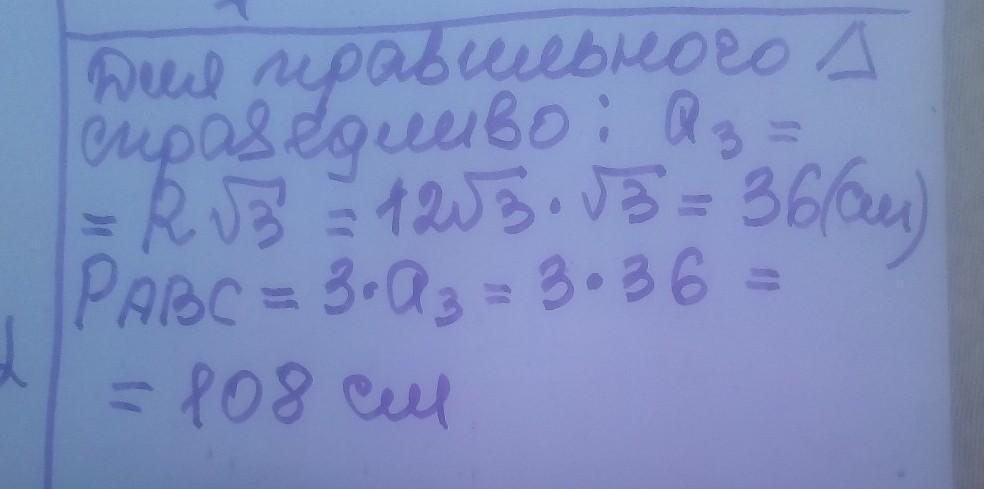 Для правильного Δ
справедливо: a₃ =
= R√3 = 12√3 · √3 = 36(см)
P ABC = 3·a₃ = 3·36 =
= 108 см